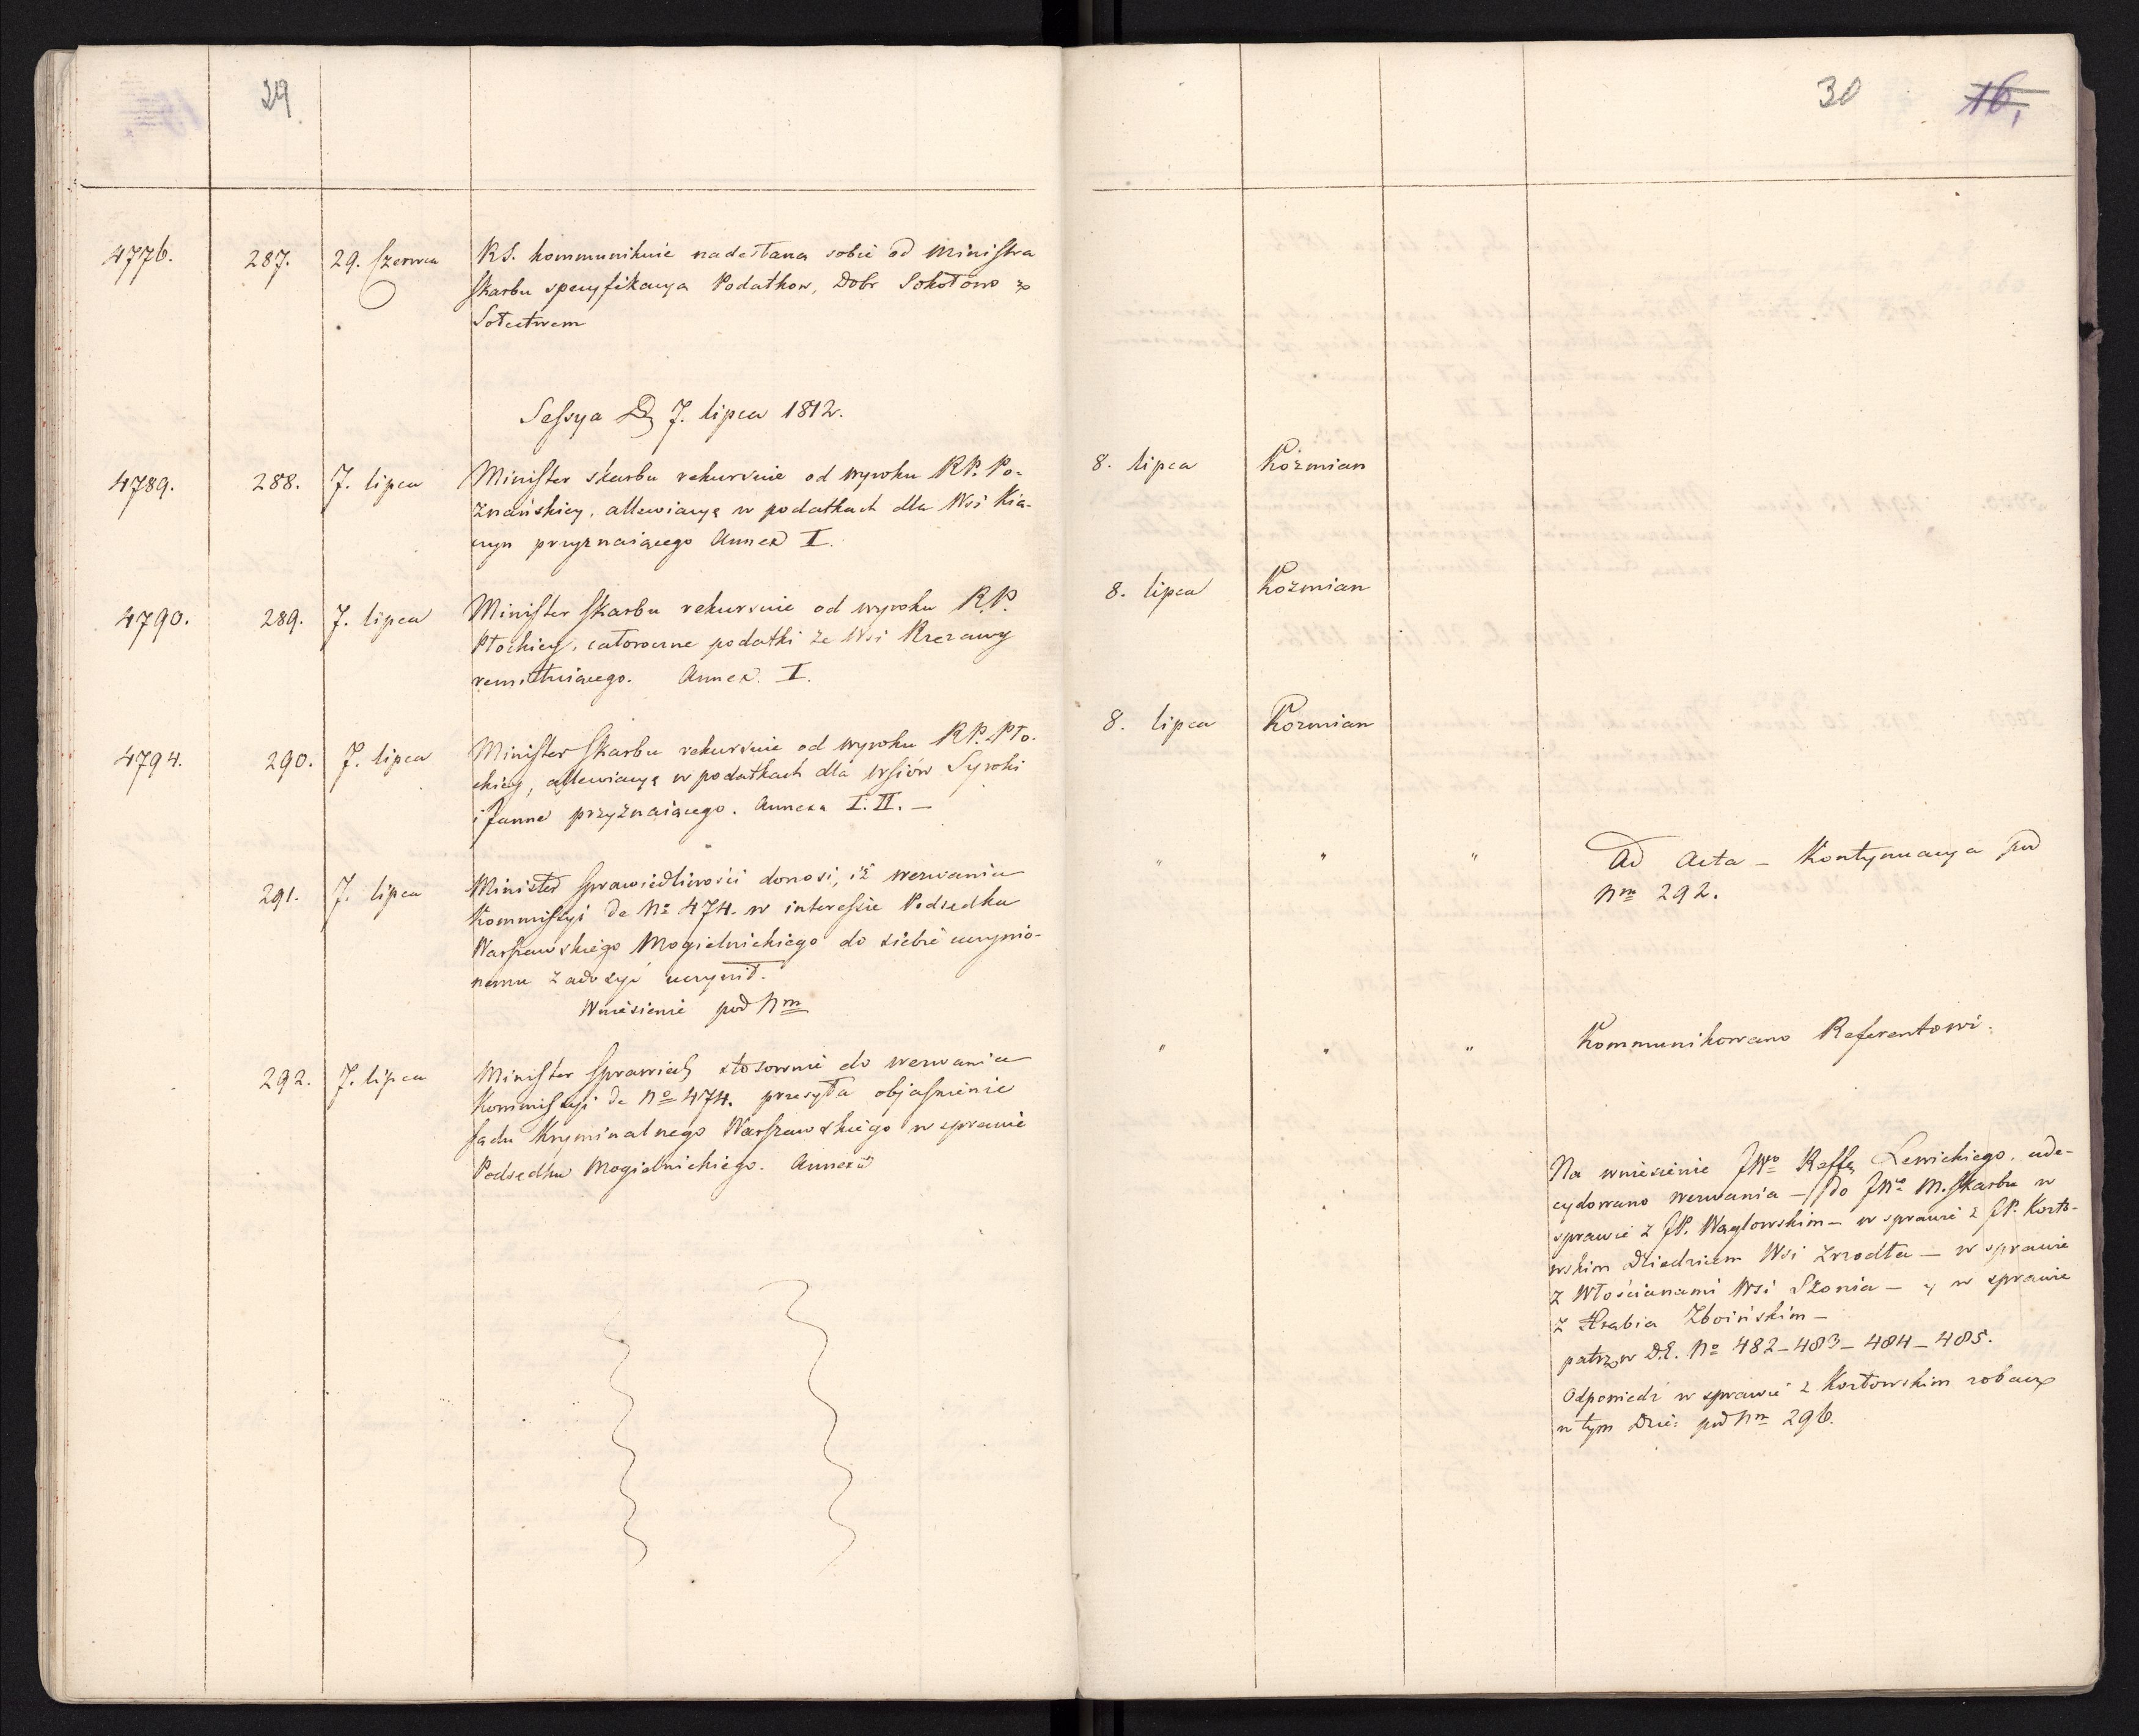 29
4776. 287. 29. Czerwca RS. kommunikuie nadesłaną sobie od Ministra
Skarbu specyfikacya Podatkow, Dobr Sokołowo z
Sołectwem
Sessya D. 7. lipca 1812.
4789. 288. 7. lipca Minister skarbu rekursuie od wyroku RP. Po-
znańskiey, allewiacyą w podatkach dla Wsi Kia-
czyn przyznaiącego Annex I.
4790. 289. 7. lipca Minister Skarbu rekursuie od wyroku R.P.
Płockiey, całoroczne podatki ze Wsi
remittuiącego. Annex. I.
4794. 290. 7. lipca Minister Skarbu rekursuie od wyroku RP. Pło-
ckiey, allewiacyą w podatkach dla wsiów Syroki
i Janne przyznaiącego. Annexa I. II. —
291. 7. lipca Minister Sprawiedliwości donosi, iż wezwaniu
Kommissyi de No 474. w interessie Podsędka
Warszawskiego Mogielnickiego do siebie uczynio-
nemu zadosyć uczynił.
Wniesienie pod Nm
292. 7. lipca Minister Sprawied stosownie do wezwania
Kommissyi de No 474. przesyła objaśnienie
Sądu Kryminalnego Warszawskiego w sprawie
Podsędka Mogielnickiego. Annexa
30 16,
8. lipca Koźmian
8. lipca Kozmian
8. lipca Kozmian
" " " Ad Acta — Kontynuacya pod
Nm 292.
" " " Kommunikowano Referentowi.
Na wniesienie JWo Reffe Lewickiego, ude-
cydowano wezwania — do JWo M. Skarbu w
sprawie z JP. Węglowskim — w sprawie z JP. Korto-
wskim Dziedzicem Wsi Zrzodła — w sprawie
z Włościanami Wsi Słonia — y w sprawie
z Hrabia Zboińskim —
patrz w D.E. No 482 — 483 — 484 — 485.
Odpowiedź w sprawie z Kortowskim zobacz
w tym Dzie: pod Nm 296.